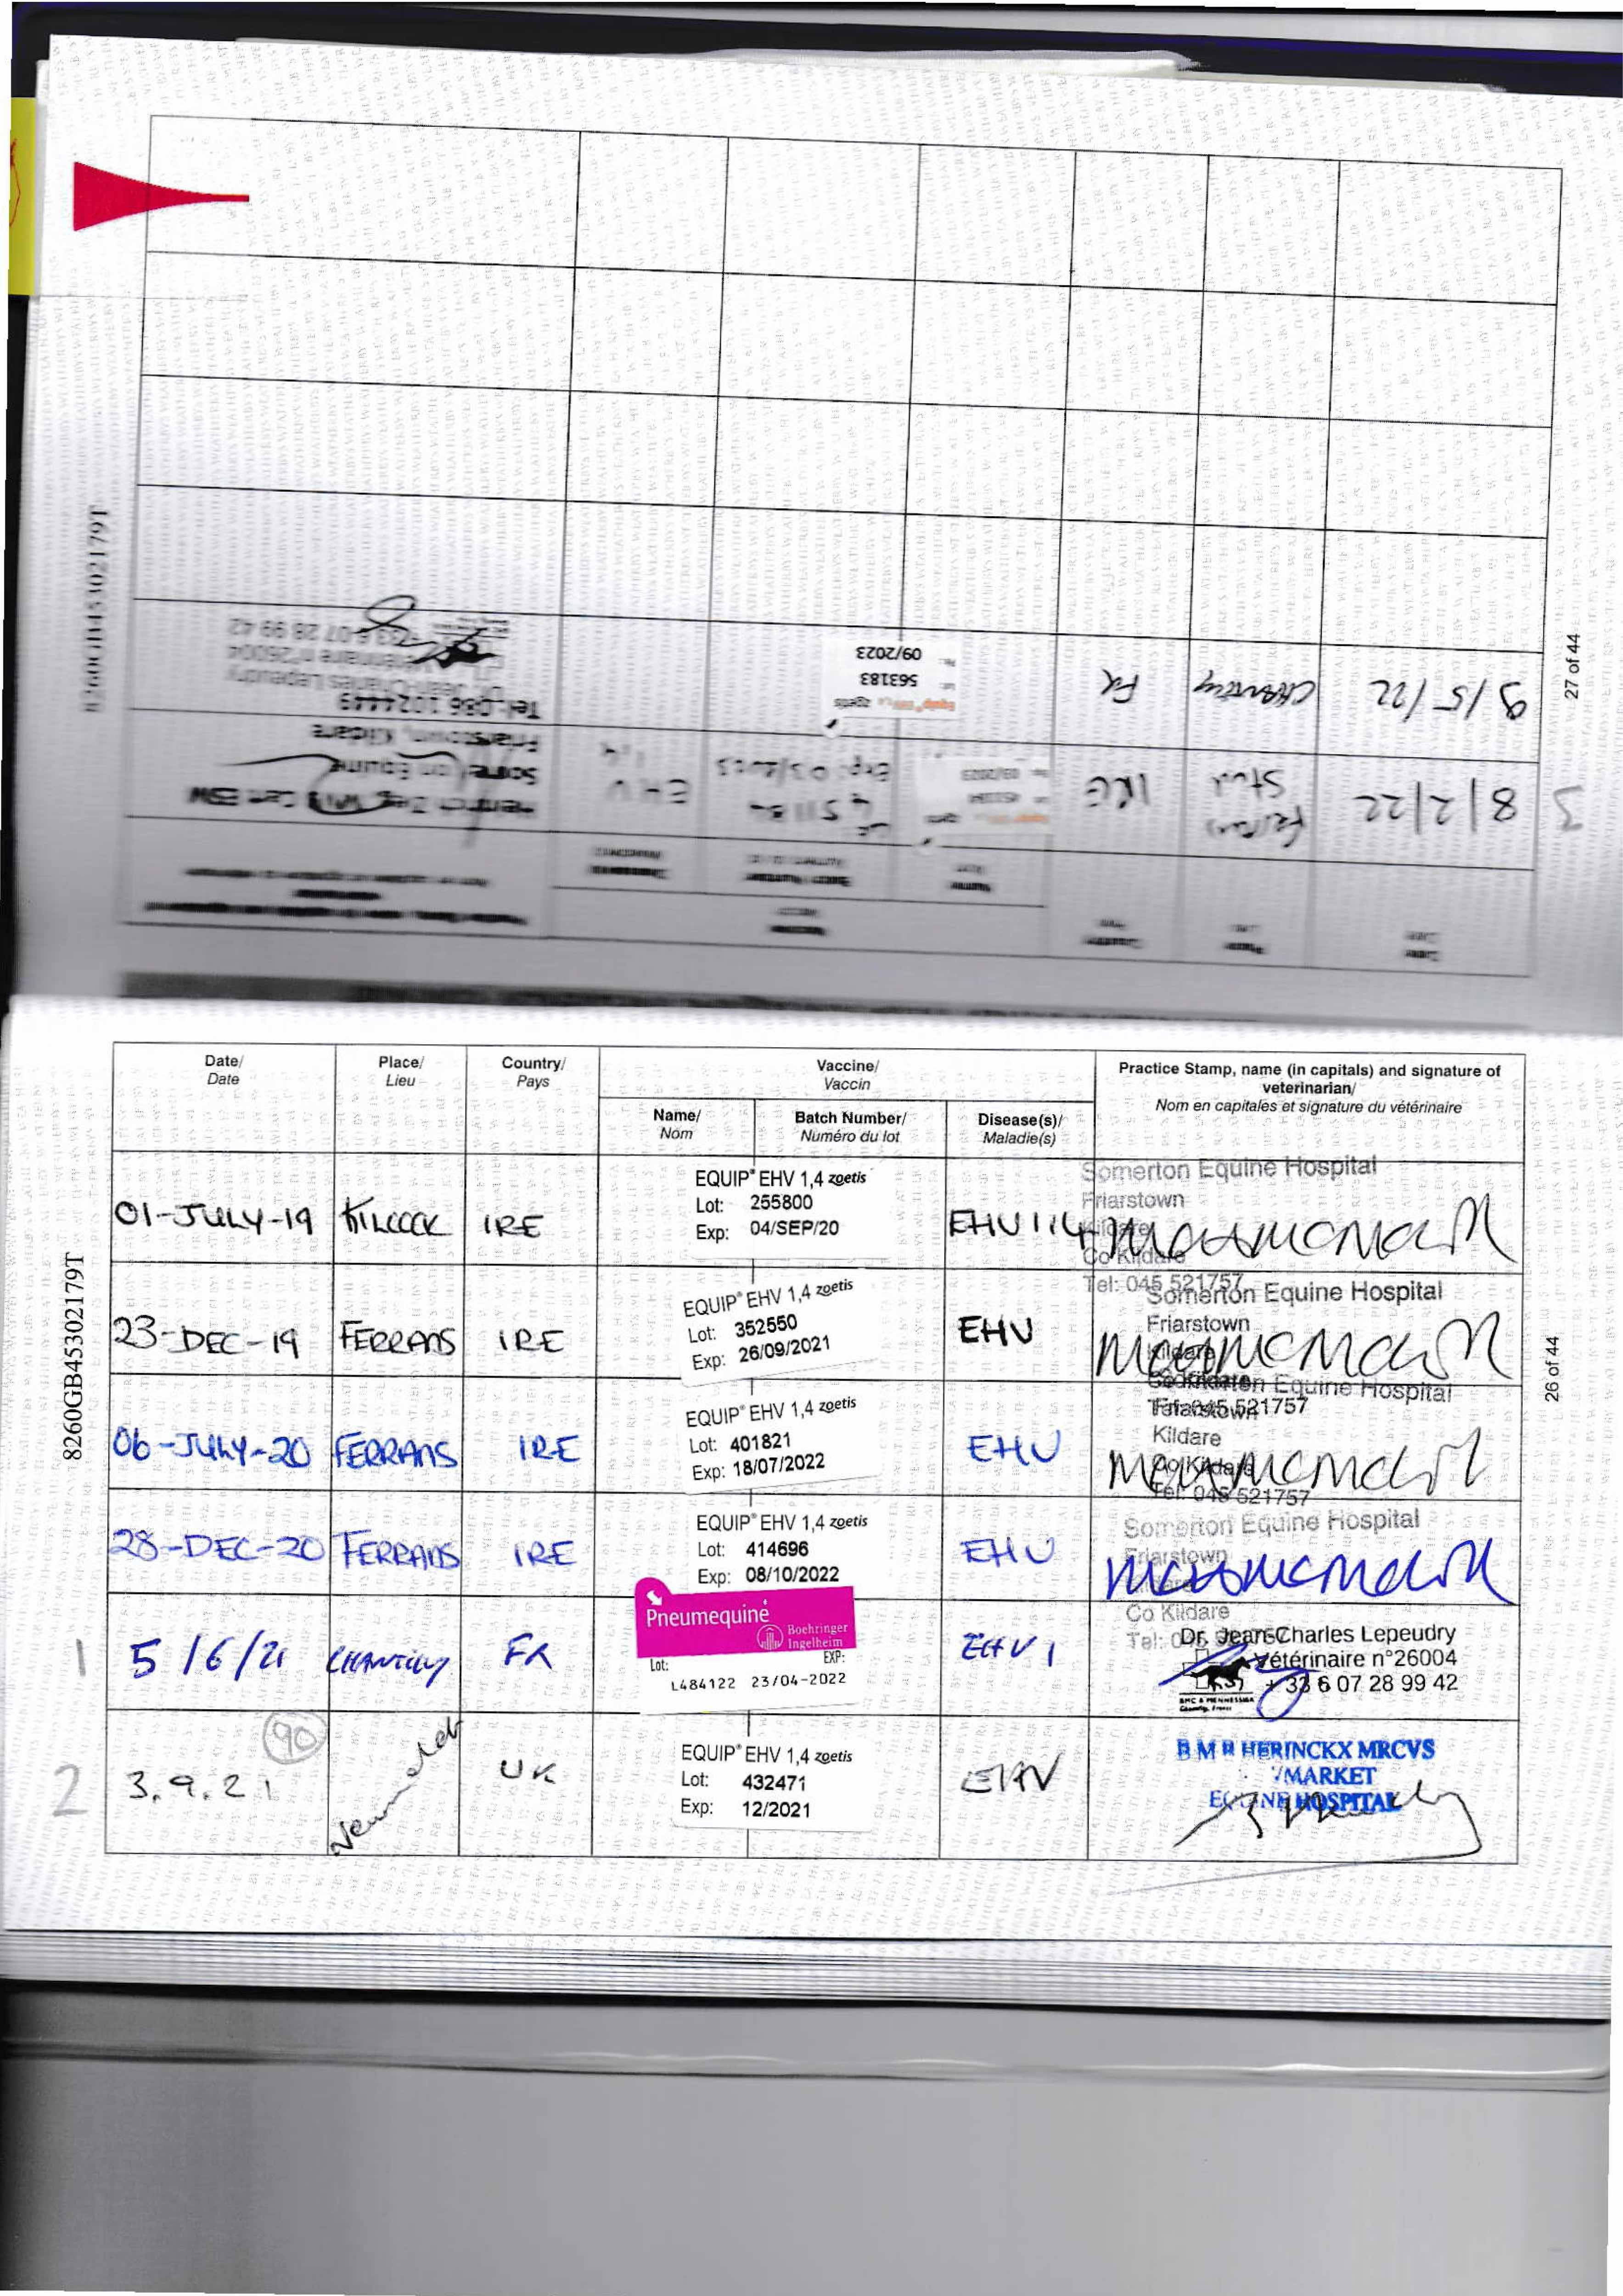 Date/
Date
Place/
Lieu
Country/
Pays
Vaccine/
Vaccin
Name/
Nom
Batch Number/
Numéro du lot
Disease(s)/
Maladie(s)
Practice Stamp, name (in capitals) and signature of
veterinarian/
Nom en capitales et signature du vétérinaire
01-JULY-19 KILCOCK IRE
EQUIP® EHV 1,4 zoetis
Lot: 255800
Exp: 04/SEP/20
EHV 1,4
Somerton Equine Hospital
Friarstown
Kildare
Co Kildare
Tel: 045 521757
23-DEC-19 FERRANS IRE
EQUIP® EHV 1,4 zoetis
Lot: 352550
Exp: 26/09/2021
EHV
Somerton Equine Hospital
Friarstown
Kildare
Co Kildare
Tel: 045 521757
06-JULY-20 FERRANS IRE
EQUIP® EHV 1,4 zoetis
Lot: 401821
Exp: 18/07/2022
EHV
Somerton Equine Hospital
Friarstown
Kildare
Co Kildare
Tel: 045 521757
28-DEC-20 FERRANS IRE
EQUIP® EHV 1,4 zoetis
Lot: 414696
Exp: 08/10/2022
EHV
Somerton Equine Hospital
Friarstown
Kildare
Co Kildare
1 5/6/21 CHANTILLY FR
Pneumequine
Boehringer
Ingelheim
Lot: EXP:
L484122 23/04-2022
EHV 1
Dr. Jean-Charles Lepeudry
Vétérinaire n°26004
+33 6 07 28 99 42
90
2 3.9.21 Newmarket UK
EQUIP® EHV 1,4 zoetis
Lot: 432471
Exp: 12/2021
EHV
B M R HERINCKX MRCVS
MARKET
EQUINE HOSPITAL
8260GB45302179T
26 of 44
Date
Place
Country
Vaccine
Name
Batch Number
3 8/2/22 Ferrans
Stud
IRE
451184
Exp: 03/2023
EHV
1,4
Somerton Equine
Friarstown, Kildare
Tel: 086 1024449
9/5/22 CHANTILLY FR
Equip zoetis
563183
09/2023
Dr. Jean-Charles Lepeudry
Vétérinaire n°26004
+33 6 07 28 99 42
8260GB45302179T
27 of 44